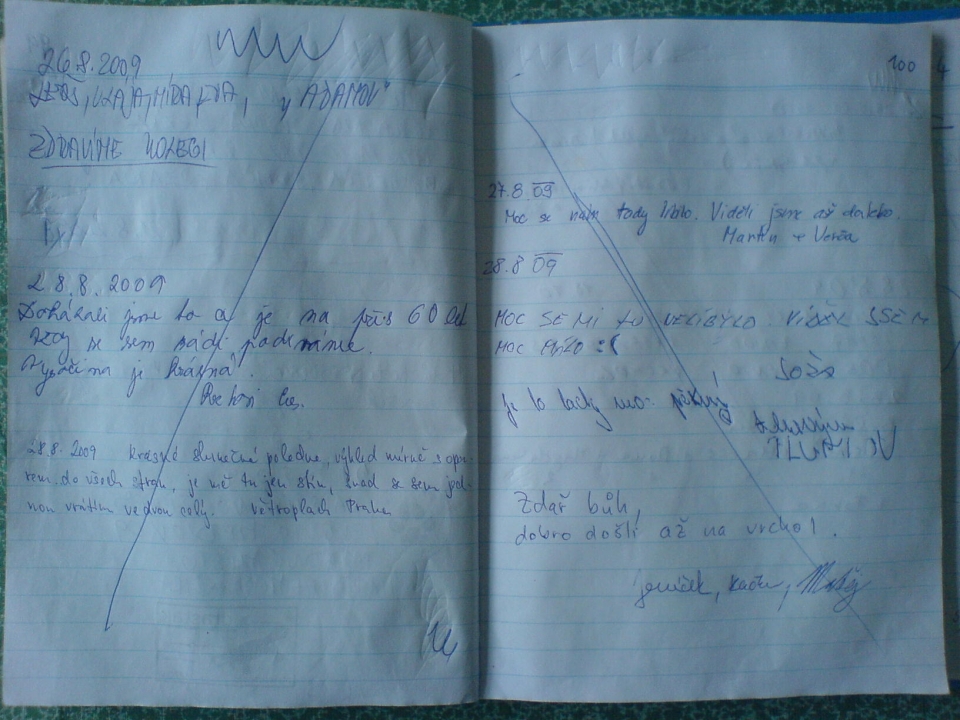 26.8.2009
MÍRA, EVA, "ADAMOV"
ZDRAVÍME KOLEGI
28.8.2009
Dokázali jsme to a je na přes 60 let
se sem rádi podíváme.
Vysočina je krásná!
28.8.2009 krásné slunečné poledne, výhled mírně s opa-
rem, do všech stran, je mě tu jen stín, snad se sem jed-
nou vrátím ve dvou celý. větroplach Praha
14
100 4
27.8 09
Moc se nám tady líbilo. Viděli jsme až daleko.
Martin + Verča
28.8 09
MOC SE MI TO NELÍBYLO. VIDĚL JSEM
MOC MÁLO :(
je to tady moc pěkný
Zdař bůh,
dobro došli až na vrchol.
jeníček, Kača, Matěj